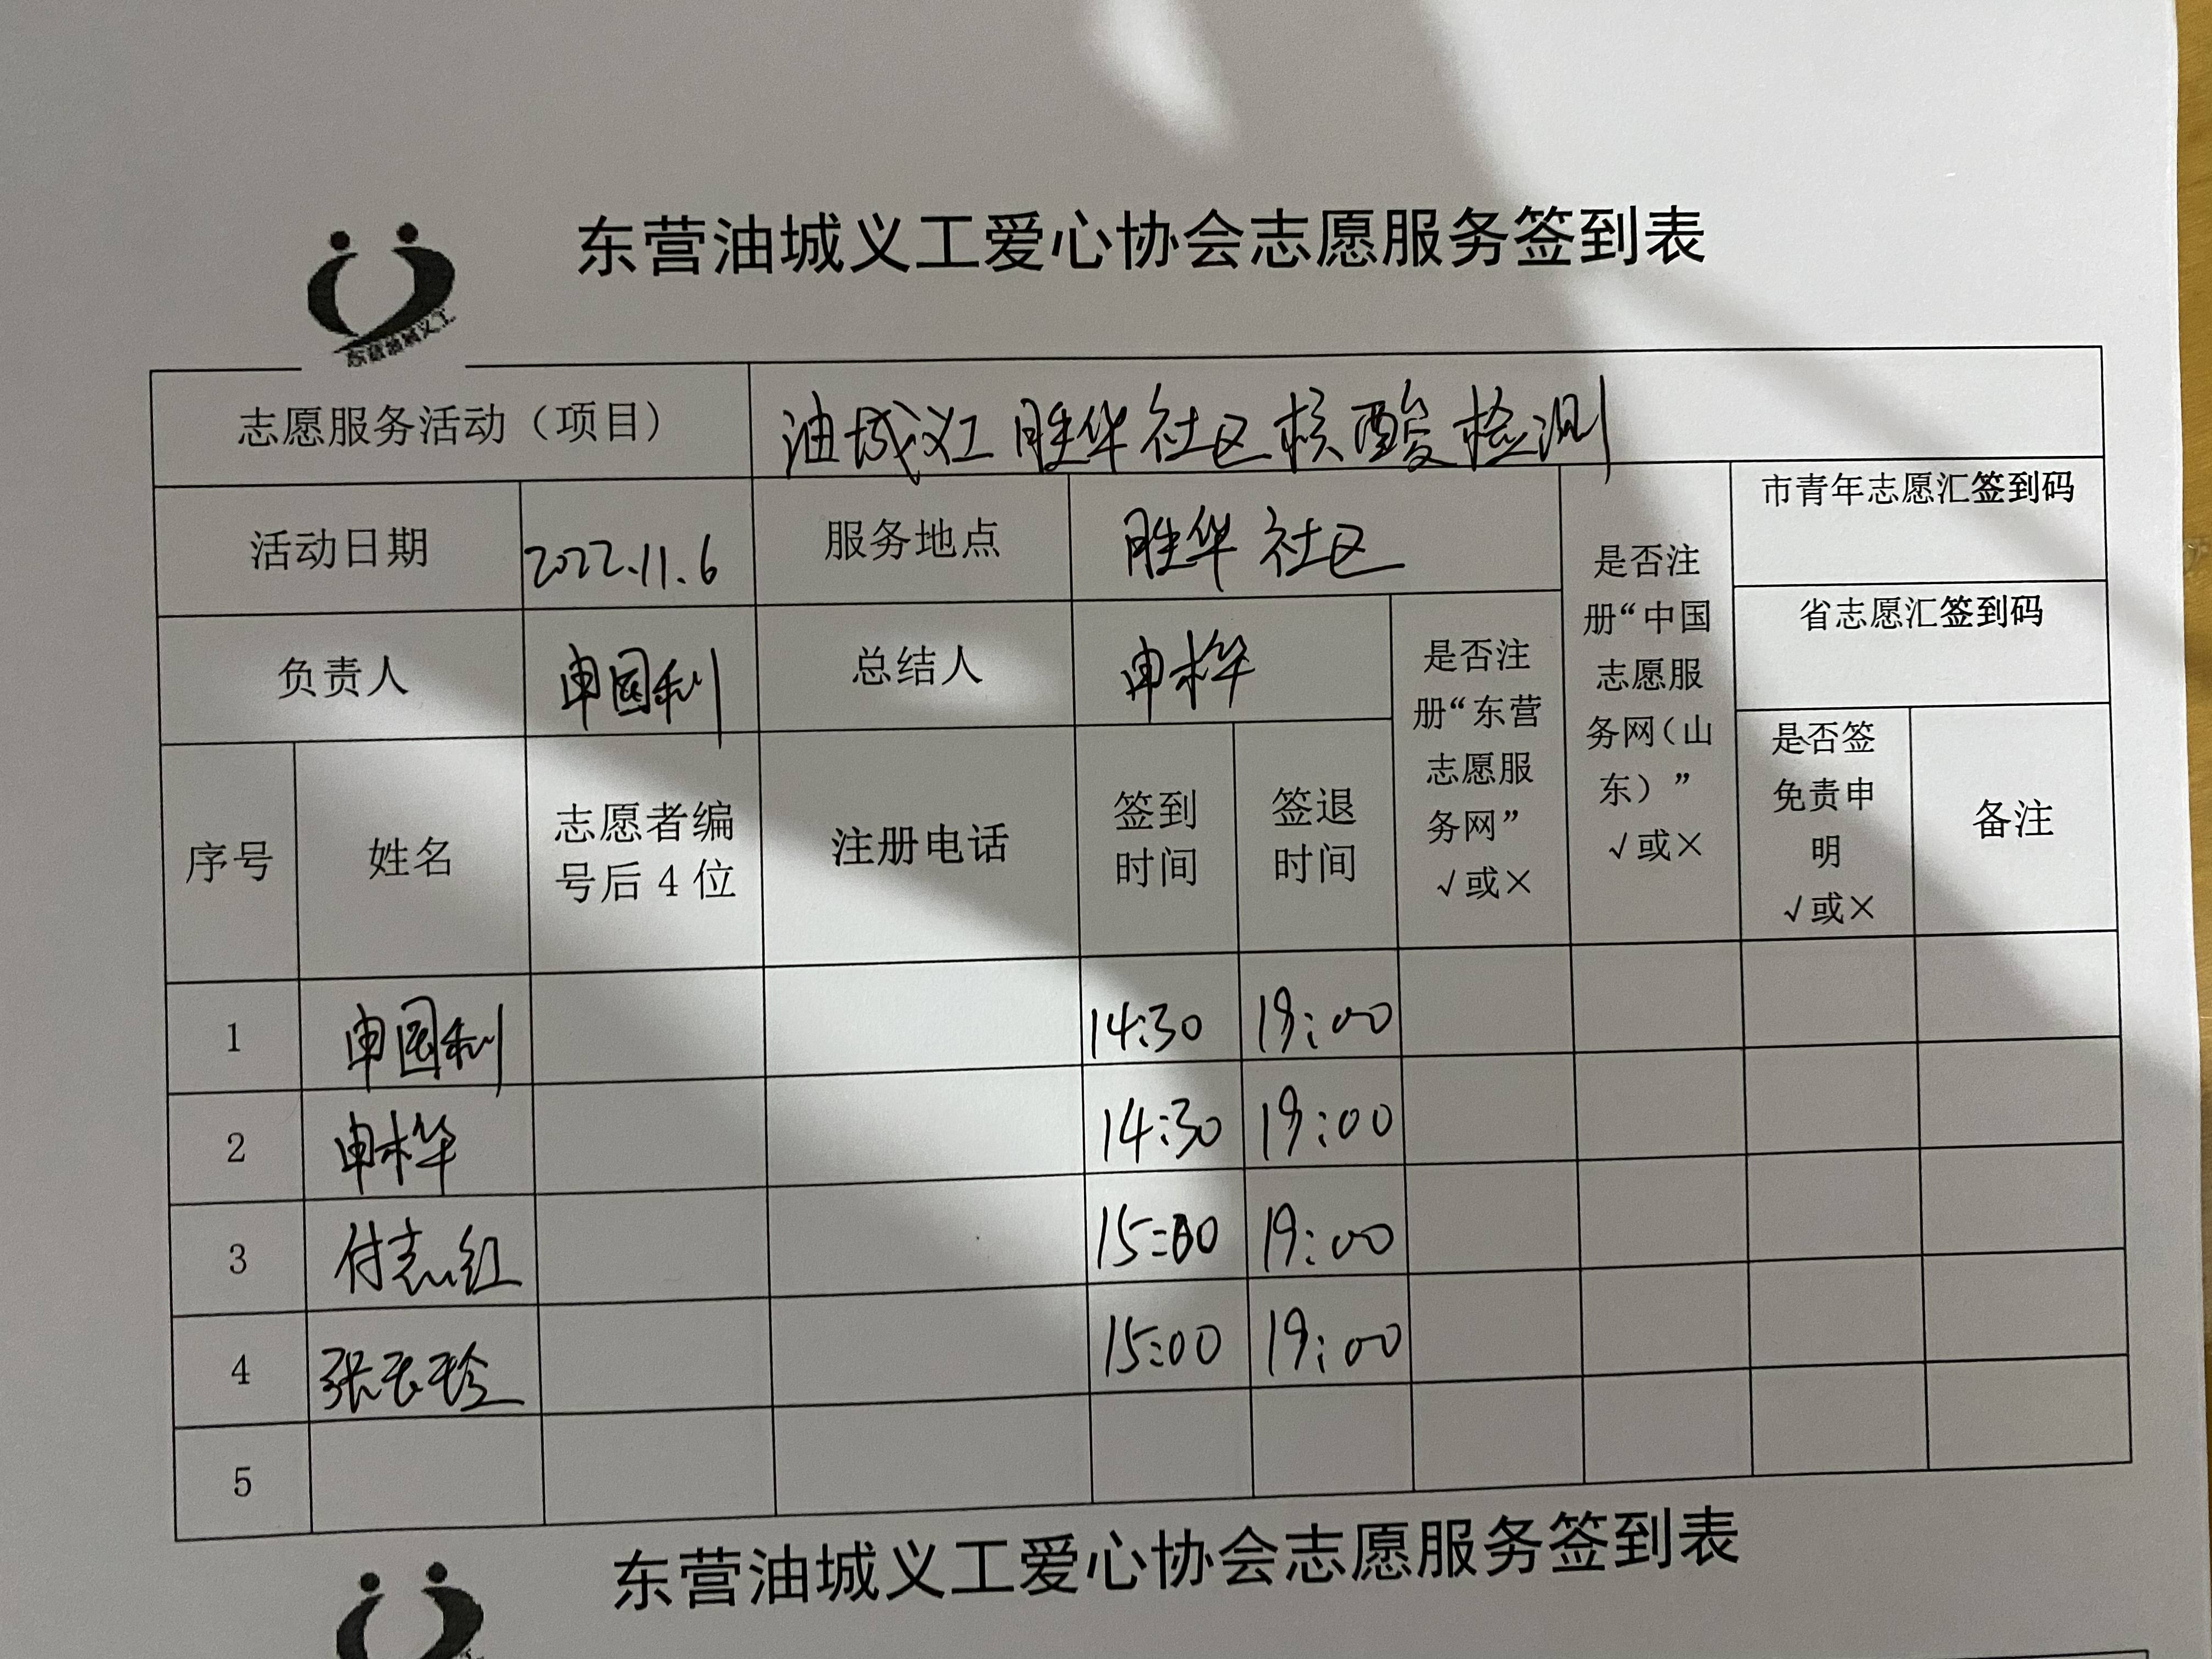 东营油城义工爱心协会志愿服务签到表
东营油城义工
志愿服务活动（项目） 油城义工胜华社区核酸检测
活动日期 2022.11.6 服务地点 胜华社区
市青年志愿汇签到码
省志愿汇签到码
负责人 申国利 总结人 申桦
序号
姓名
志愿者编
号后4位
注册电话
签到
时间
签退
时间
是否注
册“东营
志愿服
务网”
√或×
是否注
册“中国
志愿服
务网（山
东）”
√或×
是否签
免责申
明
√或×
备注
1 申国利 14:30 19:00
2 申桦 14:30 19:00
3 付志红 15:00 19:00
4 张玉珍 15:00 19:00
5
东营油城义工爱心协会志愿服务签到表